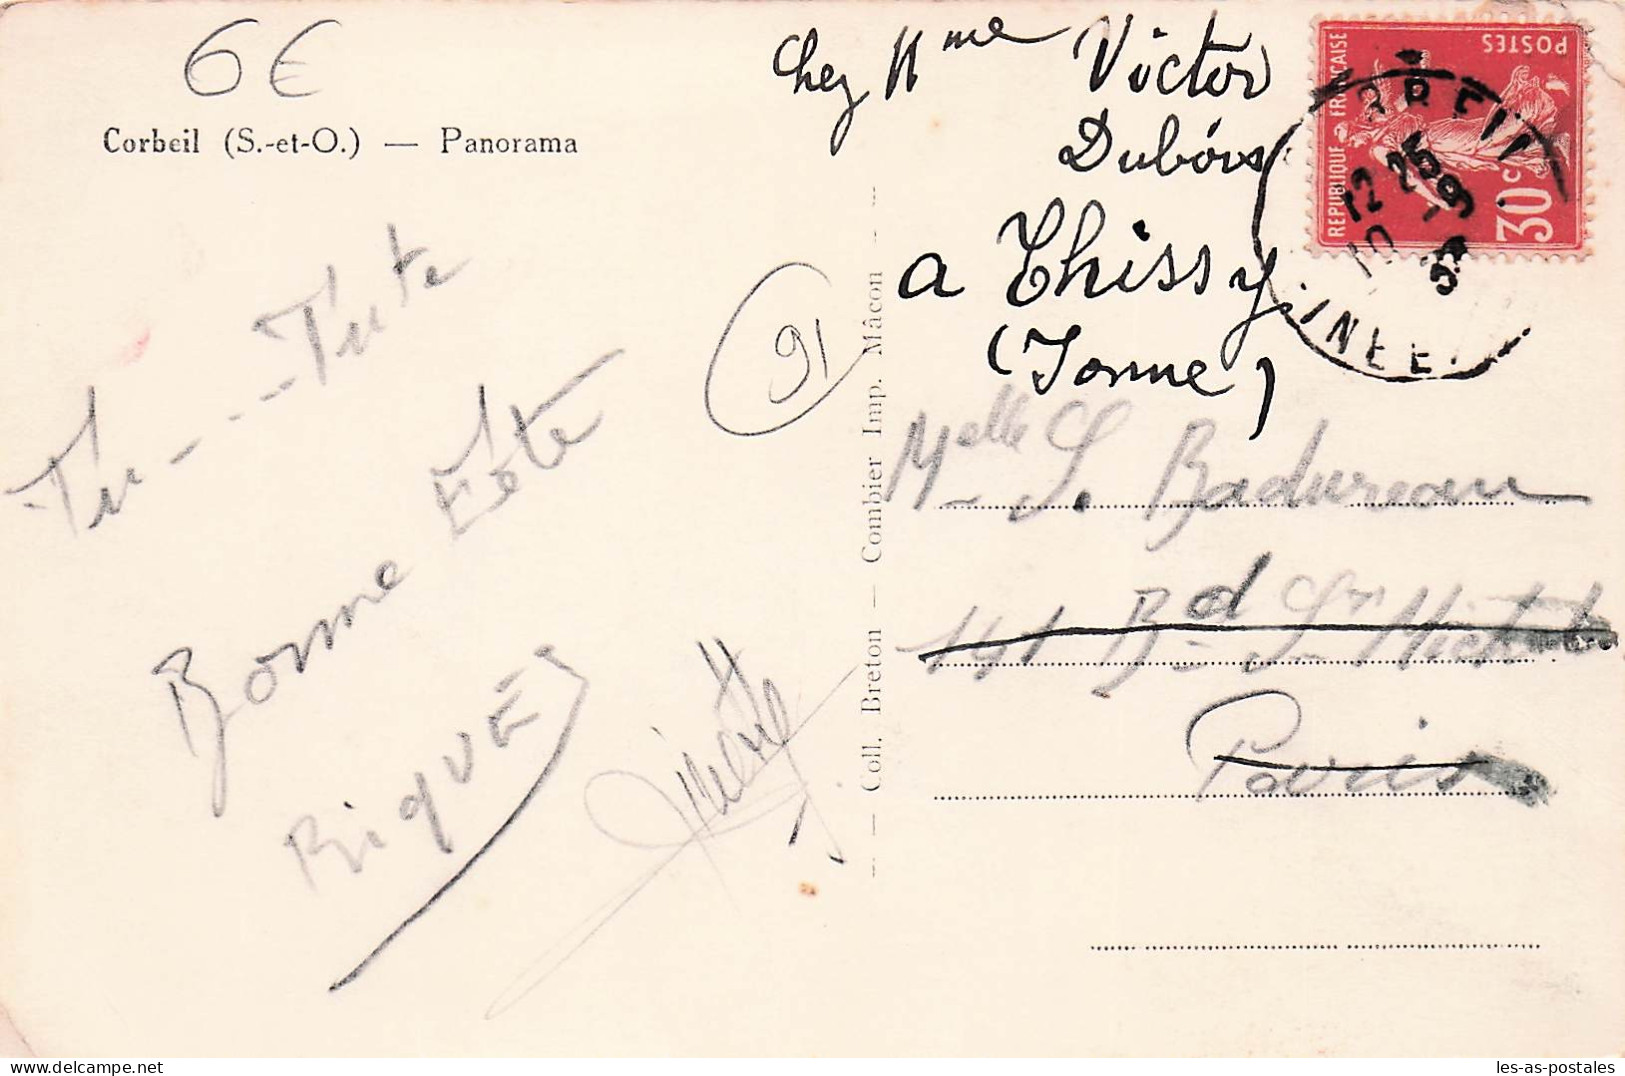 6€
Corbeil (S.-et-O.) — Panorama
Tu - - - Tute
Bonne Fête
RIQUE
Ginette
91
Coll. Breton — Combier Imp. Mâcon
Chez Mme Victor
Dubois
a Thissy
(Yonne)
Melle S. Badureau
141 Bd St Michel
Paris
REPUBLIQUE FRANÇAISE
POSTES
30c
12 25
10 -9
35
les-as-postales